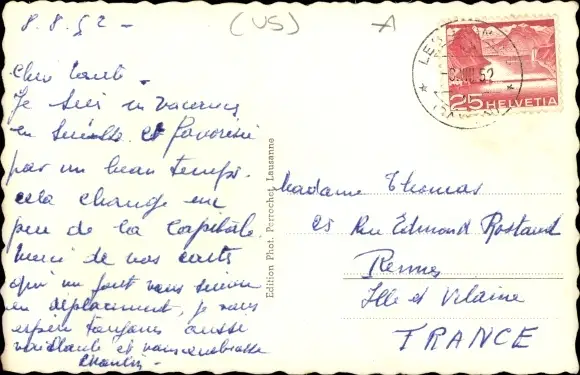 8.8.52 -
(US)
A
Chère tante.
Je suis en vacances
en Suisse et favorisée
par un beau temps.
cela change un
peu de la Capitale.
Merci de vos cartes
qui me font vous suivre
en déplacement, je vous
espère toujours aussi
vaillante et vous embrasse
8 VIII 52
25 HELVETIA
Edition Phot. Perrochet, Lausanne
Madame Thomas
25 Rue Edmond Rostand
Rennes
Ille et Vilaine
FRANCE